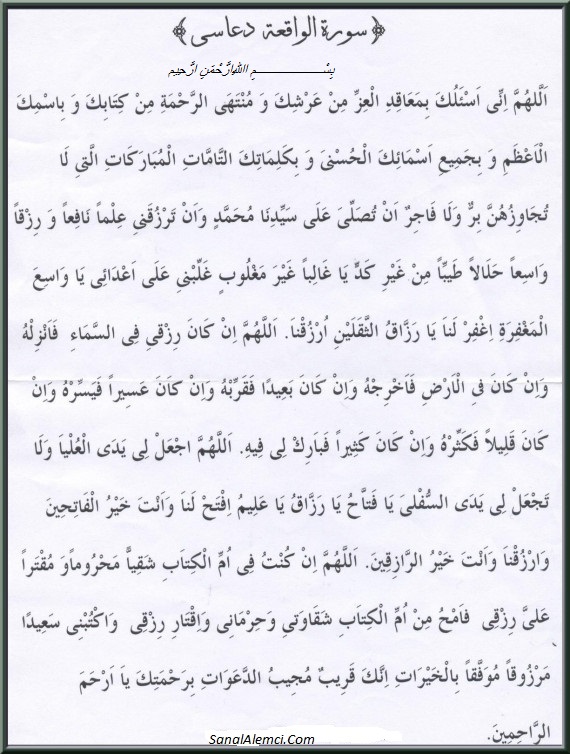 ﴿سورة الواقعة دعاسى﴾
بِسْــــــــمِ اللهِ الرَّحْمَنِ الرَّحِيمِ
اَللّٰهُمَّ اِنِّى اَسْئَلُكَ بِمَعَاقِدِ الْعِزِّ مِنْ عَرْشِكَ وَ مُنْتَهَى الرَّحْمَةِ مِنْ كِتَابِكَ وَ بِاسْمِكَ
الْاَعْظَمِ وَ بِجَمِيعِ اَسْمَائِكَ الْحُسْنىَ وَ بِكَلِمَاتِكَ التَّامَّاتِ الْمُبَارَكَاتِ الَّتِى لَا
تُجَاوِزُهُنَّ بِرٌّ وَلَا فَاجِرٌ اَنْ تُصَلِّىَ عَلَى سَيِّدِنَا مُحَمَّدٍ وَاَنْ تَرْزُقَنِى عِلْماً نَافِعاً وَ رِزْقاً
وَاسِعاً حَلَالاً طَيِّباً مِنْ غَيْرِ كَدٍّ يَا غَالِباً غَيْرَ مَغْلُوبٍ غَلِّبْنِى عَلَى اَعْدَائِى يَا وَاسِعَ
الْمَغْفِرَةِ اِغْفِرْ لَنَا يَا رَزَّاقُ الثَّقَلَيْنِ اُرْزُقْنَا. اَللّٰهُمَّ اِنْ كَانَ رِزْقِى فِى السَّمَاءِ فَاَنْزِلْهُ
وَاِنْ كَانَ فِى الْاَرْضِ فَاَخْرِجْهُ وَاِنْ كَانَ بَعِيدًا فَقَرِّبْهُ وَاِنْ كَانَ عَسِيراً فَيَسِّرْهُ وَاِنْ
كَانَ قَلِيلاً فَكَثِّرْهُ وَاِنْ كَانَ كَثِيراً فَبَارِكْ لِى فِيهِ. اَللّٰهُمَّ اجْعَلْ لِى يَدَى الْعُلْيَا وَلَا
تَجْعَلْ لِى يَدَى السُّفْلىَ يَا فَتَّاحُ يَا رَزَّاقُ يَا عَلِيمُ اِفْتَحْ لَنَا وَاَنْتَ خَيْرُ الْفَاتِحِينَ
وَارْزُقْنَا وَاَنْتَ خَيْرُ الرَّازِقِينَ. اَللّٰهُمَّ اِنْ كُنْتُ فِى اُمِّ الْكِتَابِ شَقِياًّ مَحْرُوماًوَ مُقْتَراً
عَلىَّ رِزْقِى فَامْحُ مِنْ اُمِّ الْكِتَابِ شَقَاوَتِى وَحِرْمَانِى وَاِقْتَارِ رِزْقِى وَاكْتُبْنِى سَعِيدًا
مَرْزُوقاً مُوَفَّقاً بِالْخَيْرَاتِ اِنَّكَ قَرِيبٌ مُجِيبُ الدَّعَوَاتِ بِرَحْمَتِكَ ياَ اَرْحَمَ
الرَّاحِمِينَ.
SanalAlemci.Com